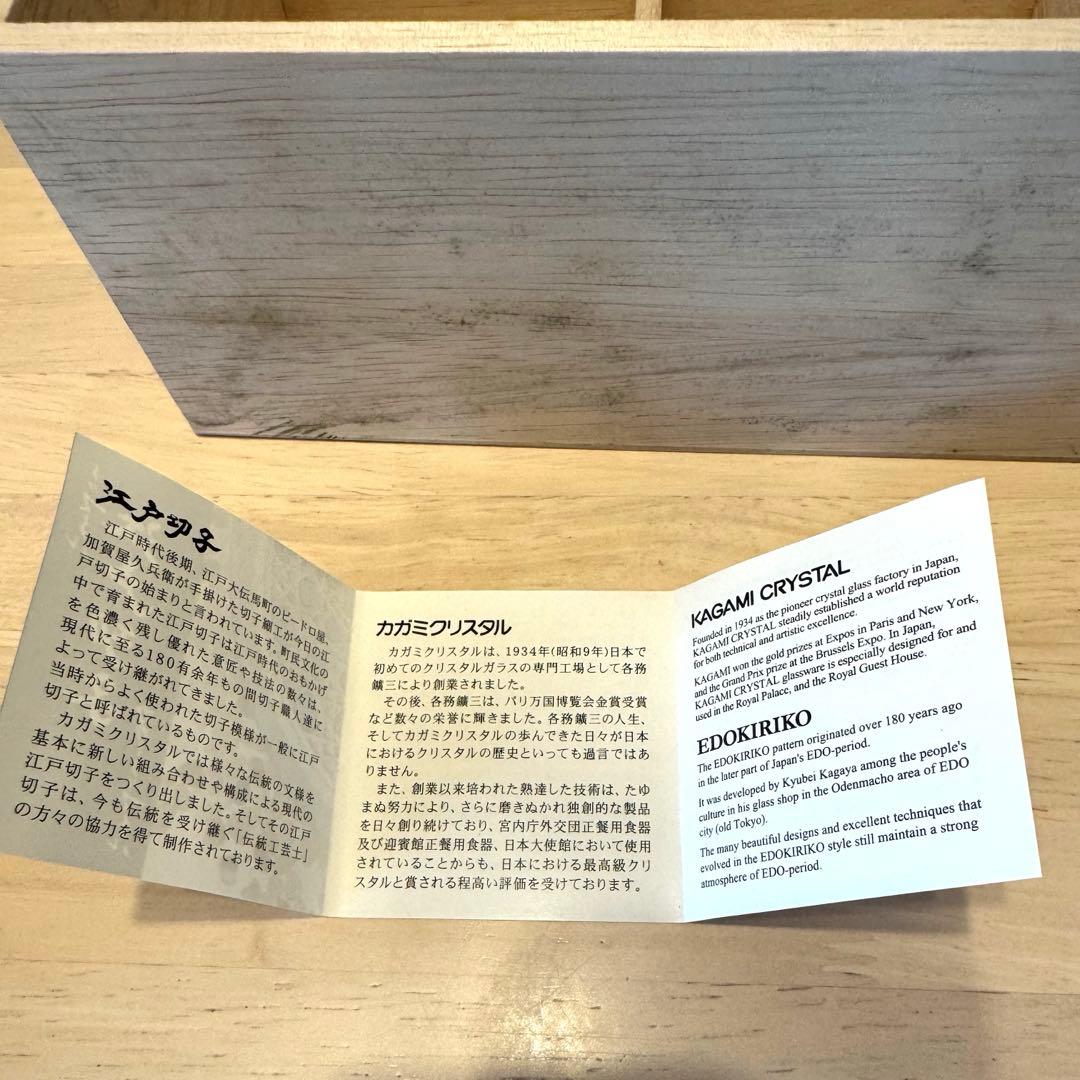 江戸切子
江戸時代後期、江戸大伝馬町のビードロ屋、
加賀屋久兵衛が手掛けた切子細工が今日の江
戸切子の始まりと言われています。町民文化の
中で育まれた江戸切子は江戸時代のおもかげ
を色濃く残し優れた意匠や技法の数々は、
現代に至る180有余年もの間切子職人達に
よって受け継がれてきました。
当時からよく使われた切子模様が一般に江戸
切子と呼ばれているものです。
カガミクリスタルでは様々な伝統の文様を
基本に新しい組み合わせや構成による現代の
江戸切子をつくり出しました。そしてその江戸
切子は、今も伝統を受け継ぐ「伝統工芸士」
の方々の協力を得て制作されております。
カガミクリスタル
カガミクリスタルは、1934年(昭和9年)日本で
初めてのクリスタルガラスの専門工場として各務
鑛三により創業されました。
その後、各務鑛三は、パリ万国博覧会金賞受賞
など数々の栄誉に輝きました。各務鑛三の人生、
そしてカガミクリスタルの歩んできた日々が日本
におけるクリスタルの歴史といっても過言ではあ
りません。
また、創業以来培われた熟達した技術は、たゆ
まぬ努力により、さらに磨きぬかれ独創的な製品
を日々創り続けており、宮内庁外交団正餐用食器
及び迎賓館正餐用食器、日本大使館において使用
されていることからも、日本における最高級クリ
スタルと賞される程高い評価を受けております。
KAGAMI CRYSTAL
Founded in 1934 as the pioneer crystal glass factory in Japan,
KAGAMI CRYSTAL steadily established a world reputation
for both technical and artistic excellence.
KAGAMI won the gold prizes at Expos in Paris and New York,
and the Grand Prix prize at the Brussels Expo. In Japan,
KAGAMI CRYSTAL glassware is especially designed for and
used in the Royal Palace, and the Royal Guest House.
EDOKIRIKO
The EDOKIRIKO pattern originated over 180 years ago
in the later part of Japan's EDO-period.
It was developed by Kyubei Kagaya among the people's
culture in his glass shop in the Odenmacho area of EDO
city (old Tokyo).
The many beautiful designs and excellent techniques that
evolved in the EDOKIRIKO style still maintain a strong
atmosphere of EDO-period.